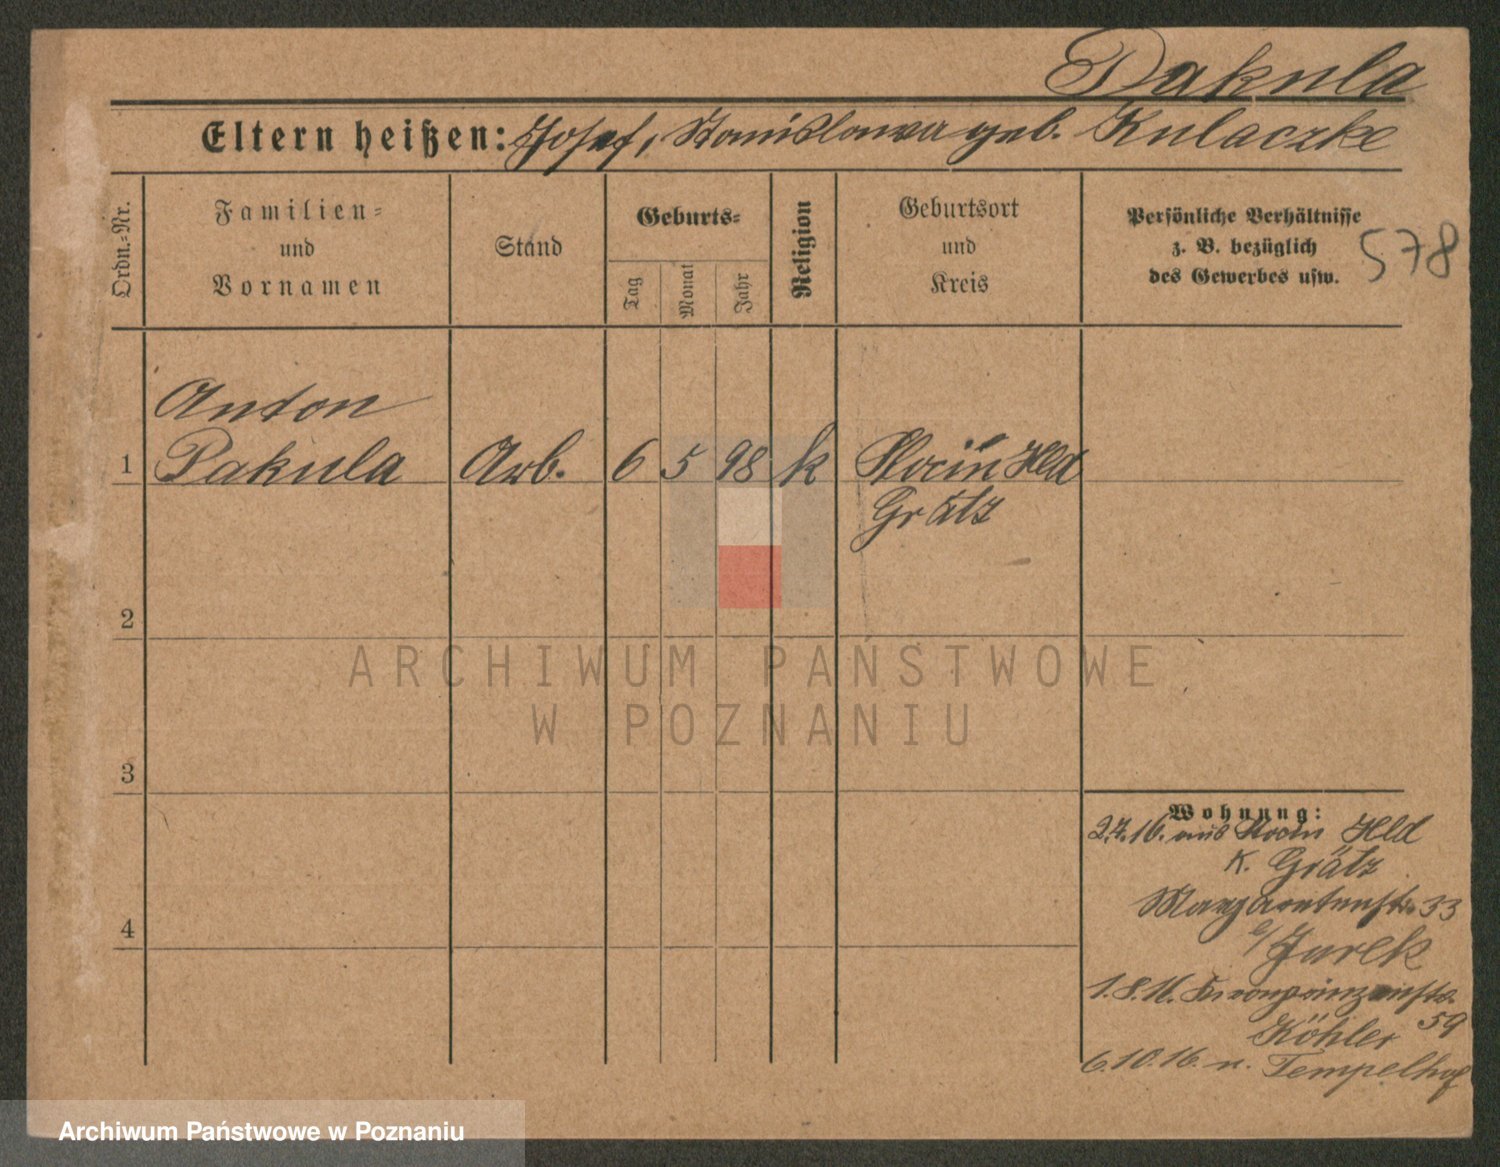 Pakula
Eltern heißen: Josef, Stanislawa geb. Kulaczke
Ordn.=Nr.
Familien=
und
Vornamen
Stand
Geburts=
Tag
Monat
Jahr
Religion
Geburtsort
und
Kreis
Persönliche Verhältnisse
z. B. bezüglich
des Gewerbes usw.
578
Anton
1 Pakula Arb. 6 5 98 k Slocin Hld
Grätz
2
ARCHIWUM PAŃSTWOWE
W POZNANIU
3
Wohnung:
aus Slocin Hld
K. Grätz
Margaretenstr. 33
b/ Jurek
1.8.16. Kronprinzenstr.
59
Köhler
6.10.16. n. Tempelhof
4
Archiwum Państwowe w Poznaniu